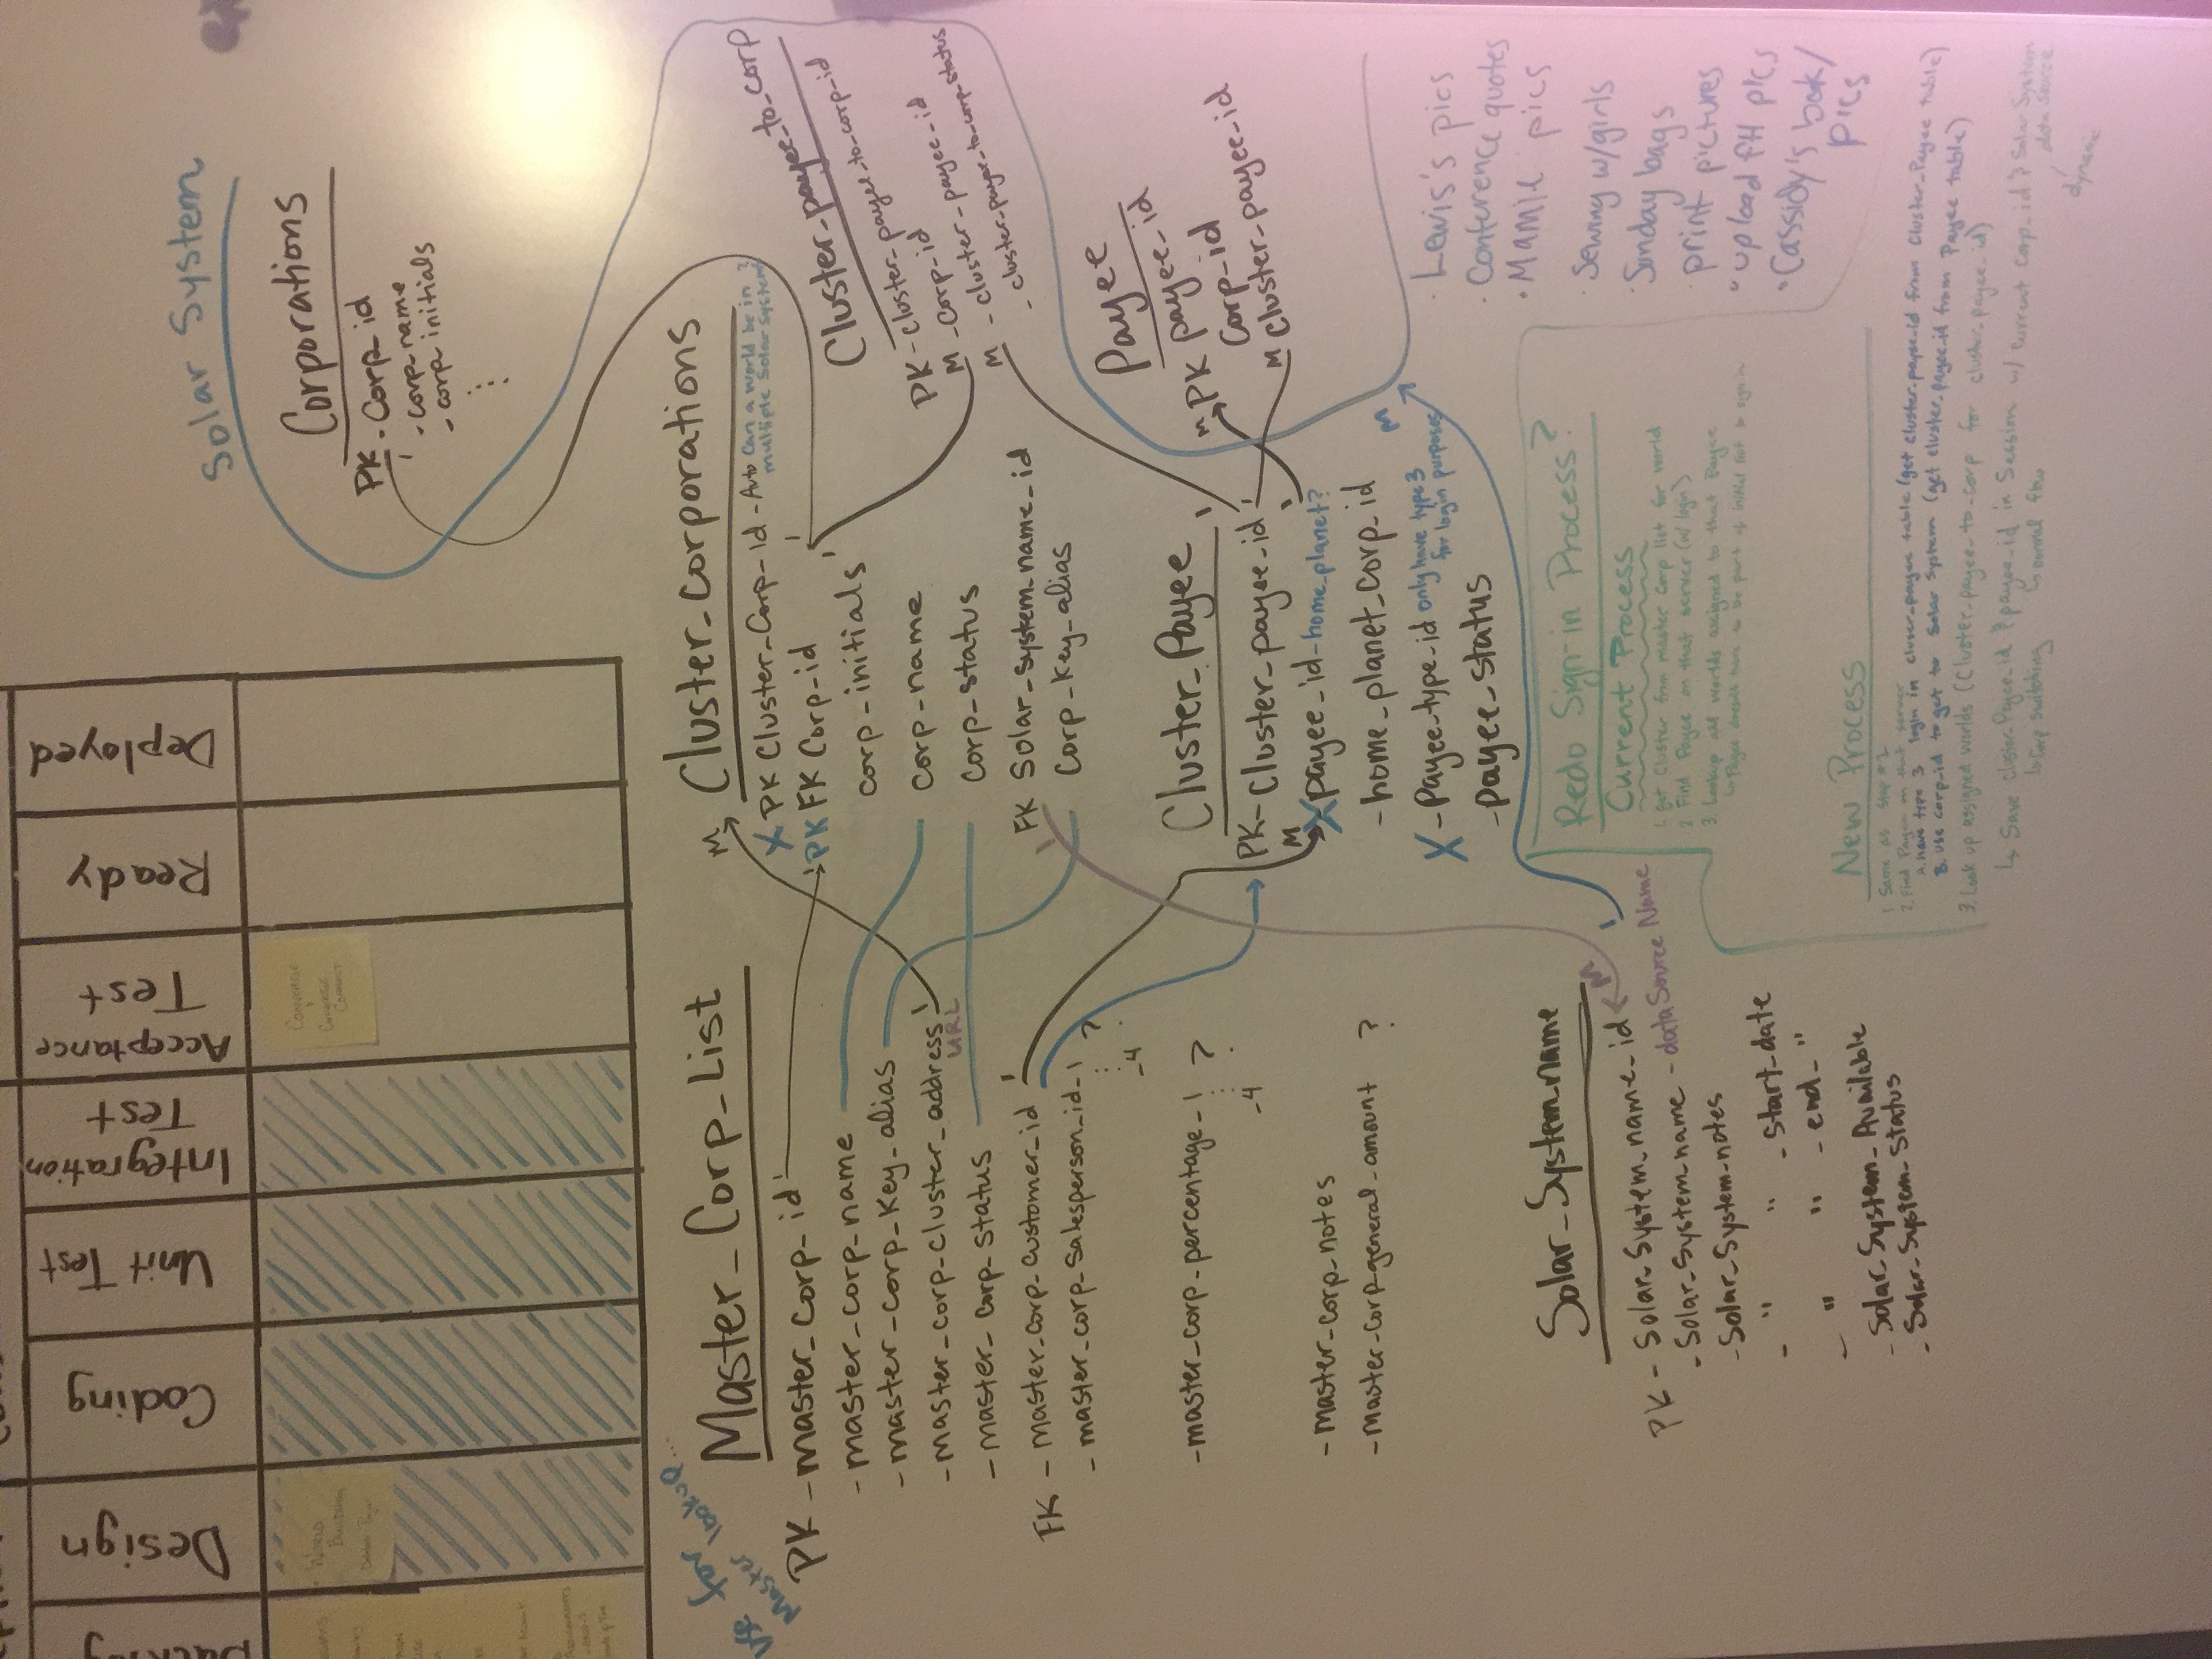 Backlog
Design
Coding
Unit Test
Integration
Test
Acceptance
Test
Ready
Deployed
For lookup...
Master
Master_Corp_List
PK - master_corp_id 1
- master_corp_name
- master_corp_key_alias
- master_corp_cluster_address 1
URL
- master_corp_status
FK - master_corp_customer_id 1
- master_corp_salesperson_id_1 ?
-4
- master_corp_percentage_1 ?
-4
- master_corp_notes
- master_corp_general_amount ?
Solar_System_name
PK - Solar_System_name_id M
- Solar_System_name - dataSource Name
- Solar_System_notes
- " " - start_date
- " " - end_"
- Solar_System_Available
- Solar_System_status
M Cluster_Corporations
X PK Cluster_Corp_id - Auto Can a world be in
multiple Solar Systems?
PK FK Corp_id
corp_initials
corp_name
corp_status
FK Solar_system_name_id
Corp_key_alias
Cluster_Payee
PK - Cluster_payee_id
M X payee_id - home_planet?
- home_planet_corp_id
X - Payee_type_id only have type 3
for login purposes
- payee_status
Solar System
Corporations
PK - Corp_id
- corp_name
- corp initials
Cluster_payee_to_corp
PK - cluster_payee_to_corp_id
M - corp_id
M - cluster_payee_id
- cluster_payee_to_corp_status
Payee
M PK payee_id
Corp_id
M Cluster_payee_id
· Lewis's pics
· Conference quotes
· Mamie pics
· Sewing w/girls
· Sunday bags
· print pictures
· upload FH pics
· Cassidy's book/
pics
Redo Sign-in Process?
Current Process
1. Get Cluster from master corp list for world
2. Find Payee on that server (w/ login)
3. Lookup all worlds assigned to that Payee
↳ Payee doesn't have to be part of initial list to sign in
New Process
1. Same as step #1
2. Find Payee on that server
A. have type 3 login in cluster-payee table (get cluster-payee-id from Cluster-Payee table)
B. use corp-id to get to solar system (get cluster-payee-id from Payee table)
3. Look up assigned worlds (Cluster-payee-to-corp for cluster-payee-id)
↳ Save cluster Payee_id & payee_id in Session w/ current corp_id & Solar System
data source
dynamic
↳ Corp switching
↳ normal flow